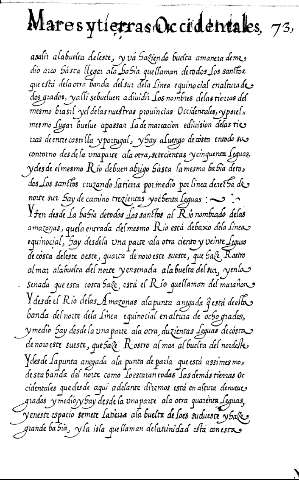 Mares y tierras Occidentales, 73,
asalir alabuelta deleste, y va haziendo buelta amanera deme
dio arco hasta llegar ala bahia quellaman detodos los santos
que está dela otra banda del sur dela linea equinocial en altura de
dos grados, y alli sebuelven adiuidir los nombres delas tierras del
mesmo brasil y del delas nuestras provincias Occidentales, y por el
mesmo lugar buelue apassar la demarcacion ediuision delas tie
rras de entre castilla y portugal, y hay aluengo de costa entodo su
contorno desde la vna parte ala otra, setecientas y cinquenta leguas,
y desde el mesmo Rio de buen abrigo hasta la mesma bahia deto
dos los santos cruzando la tierra por medio por linea derecha de
norte sur hay de camino trezientas y ochenta leguas :
Yten desde la bahia detodos los santos al Rio nombrado delas
amazonas, quela entrada del mesmo Rio está debaxo dela linea
equinocial, hay desdela vna parte ala otra ciento y veinte leguas
de costa deleste oeste, quarta de noroeste sueste, que haze Rostro
al mar alabuelta del norte y ensenada ala buelta del sur, y enla
senada que esta costa haze está el Rio quellaman del marañon
Y desde el Rio delas Amazonas ala punta anegada que está desta
banda del norte dela linea equinocial en altura de ocho grados,
y medio hay desde la vna parte ala otra duzientas leguas de costa
de noroeste sueste, que haze Rostro al mar al buelta del nordeste
Y desde la punta anegada ala punta de paria que está assimesmo
desta banda del norte como lo estan todas las demás tierras Oc
cidentales que desde aqui adelante diremos está en altura denueue
grados y medio y hay desde la vna parte ala otra quarenta leguas,
y en este espacio semete la tierra ala buelta de loes sudueste y haze
grande bahia, y la isla quellaman dela trinidad está en esta